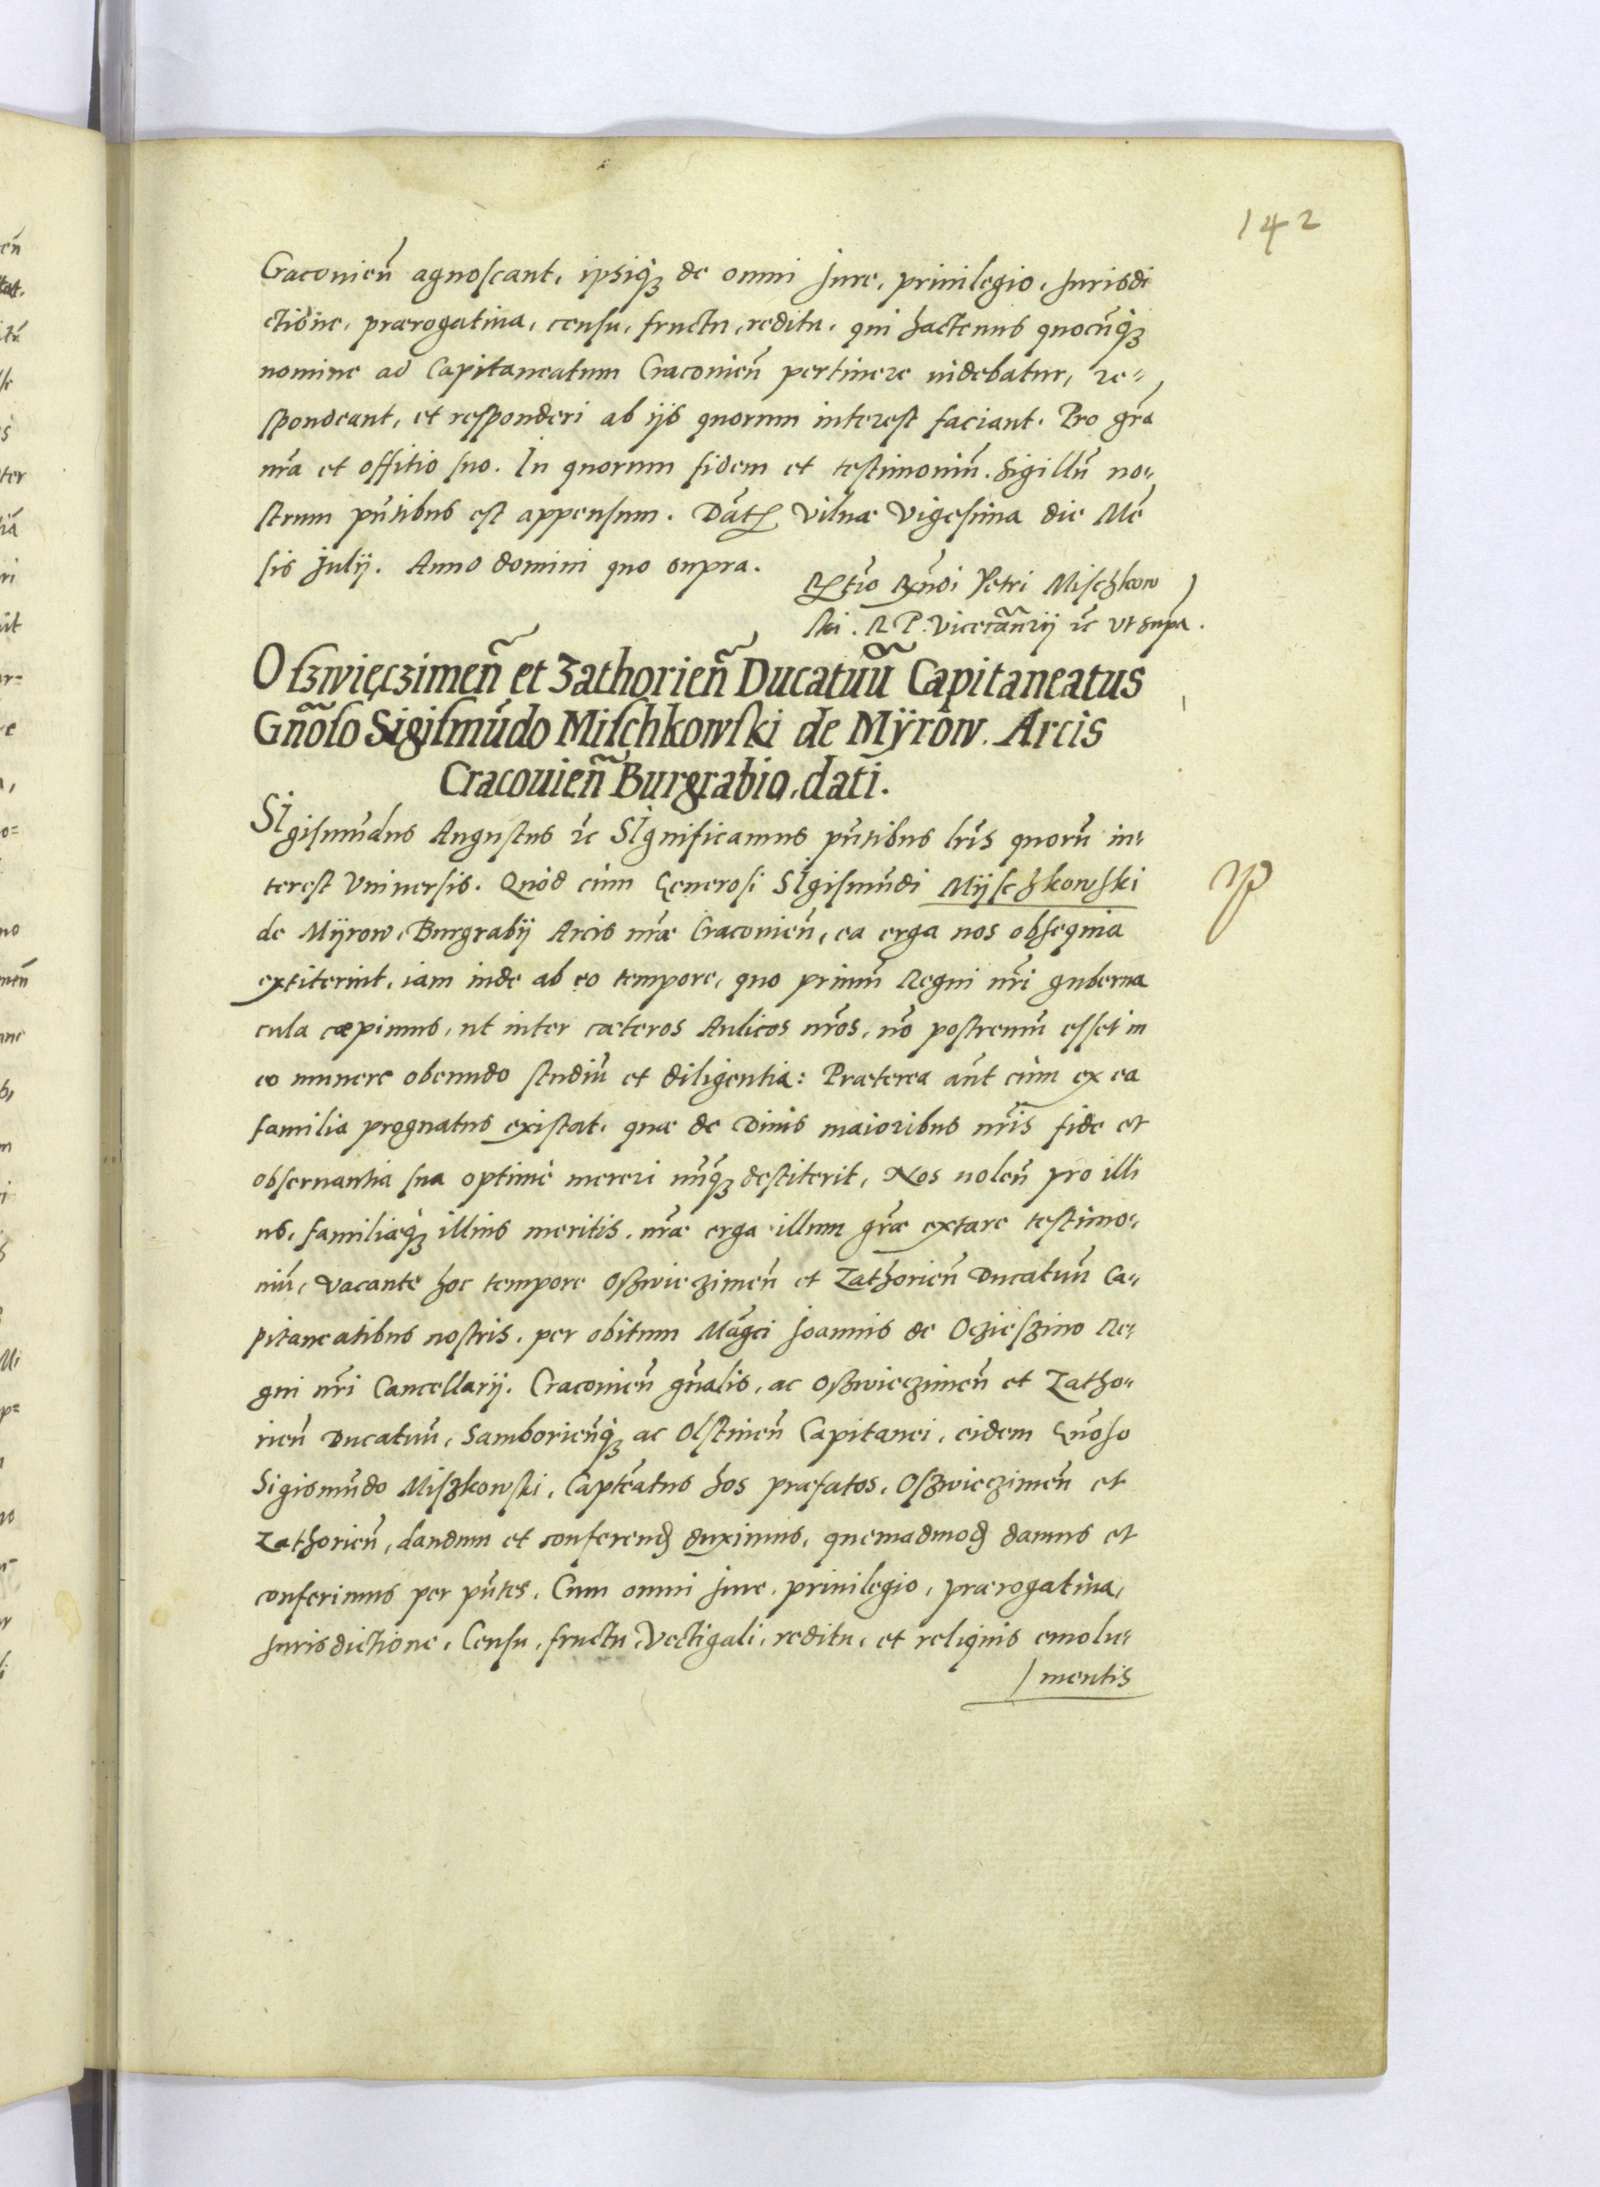 142
Cracouien̄ agnoscant, ipsiq̃ꝫ de omni Jure, priuilegio, Jurisdi
ctione, prærogatiua, censu, fructu, reditu, qui hactenus quocūq̃ꝫ
nomine ad Capitaneatum Cracouien̄ pertinere uidebatur, re-
spondeant, et responderi ab ijs quorum interest faciant. Pro gr̃a
nr̃a et offitio suo. In quorum fidem et testimoniũ. Sigillũ no-
strum pn̄tibus est appensum. Dat̃ Vilnæ Vigesima die Mẽ
sis Julij. Anno domini quo supra.
Rl̃tio Rn̄di Petri Mischkow
ski. R. P. Vicecan̄rij ꝛc̃ vt supra.
Oſzwięczimen̄ et Zathorien̄ Ducatuũ Capitaneatus
Gn̄oso Sigismũdo Mischkowski de Mÿrow. Arcis
Cracouien̄ Burgrabio, dati.
SIgismũdus Augustus ꝛc̃ SIgnificamus pn̄tibus lr̃is quorũ in-
terest Vniuersis. Quòd cùm Generosi SIgismũdi Mijschkowski
de Mijrow, Burgrabij Arcis nr̃æ Cracouien̄, ea erga nos obsequia
extiterint, iam inde ab eo tempore, quo primũ Regni nr̃i guberna
cula cæpimus, ut inter cæteros Aulicos nr̃os, nõ postremũ esset in
eo munere obeundo studiũ et diligentia: Præterea aũt cùm ex ea
familia prognatus existat, quæ de Diuis maioribus nr̃is fide et
obseruantia sua optimè mereri nũq̃ꝫ destiterit, Nos uolen̄ pro illi
us, familiæq̃ꝫ illius meritis, nr̃æ erga illum gr̃æ extare testimo-
niũ, Vacante hoc tempore Oſzwieczimen̄ et Zathorien̄ Ducatuũ Ca-
pitaneatibus nostris, per obitum Mag̃ci Joannis de Oczieszino Re-
gni nr̃i Cancellarij. Cracouien̄ gn̄alis, ac Oſzwieczimen̄ et Zatho-
rien̄ Ducatuũ, Samborien̄q̃ꝫ ac Olstinen̄ Capitanei, eidem Gn̄oso
Sigismũdo Miszkowski, Captẽatus hos præfatos, Oſzwieczimen̄ et
Zathorien̄, dandum et conferend̃ duximus, quemadmod̃ damus et
conferimus per pn̄tes. Cum omni Jure, priuilegio, prærogatiua,
Jurisdictione, Censu, fructu, Vectigali, reditu, et reliquis emolu-
mentis